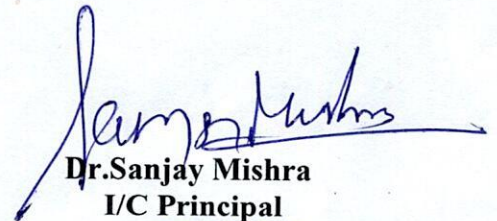 Sanjay Mishra
Dr.Sanjay Mishra
I/C Principal